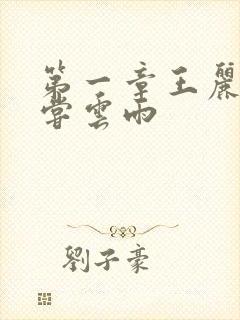 第一章王麗
嘗雲雨
劉子豪